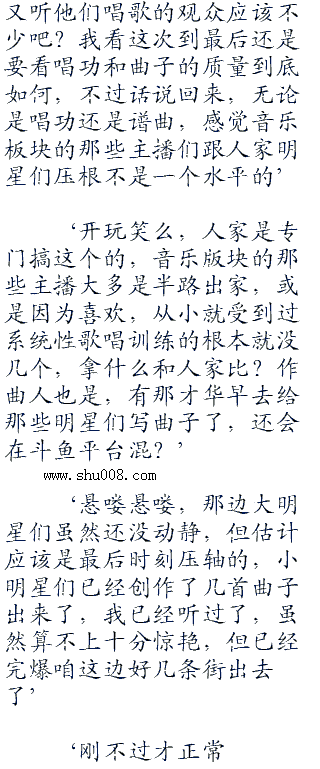 又听他们唱歌的观众应该不
少吧？我看这次到最后还是
要看唱功和曲子的质量到底
如何，不过话说回来，无论
是唱功还是谱曲，感觉音乐
板块的那些主播们跟人家明
星们压根不是一个水平的’
‘开玩笑么，人家是专
门搞这个的，音乐版块的那
些主播大多是半路出家，或
是因为喜欢，从小就受到过
系统性歌唱训练的根本就没
几个，拿什么和人家比？作
曲人也是，有那才华早去给
那些明星们写曲子了，还会
在斗鱼平台混？’
www.shu008.com
‘悬喽悬喽，那边大明
星们虽然还没动静，但估计
应该是最后时刻压轴的，小
明星们已经创作了几首曲子
出来了，我已经听过了，虽
然算不上十分惊艳，但已经
完爆咱这边好几条街出去
了’
‘刚不过才正常